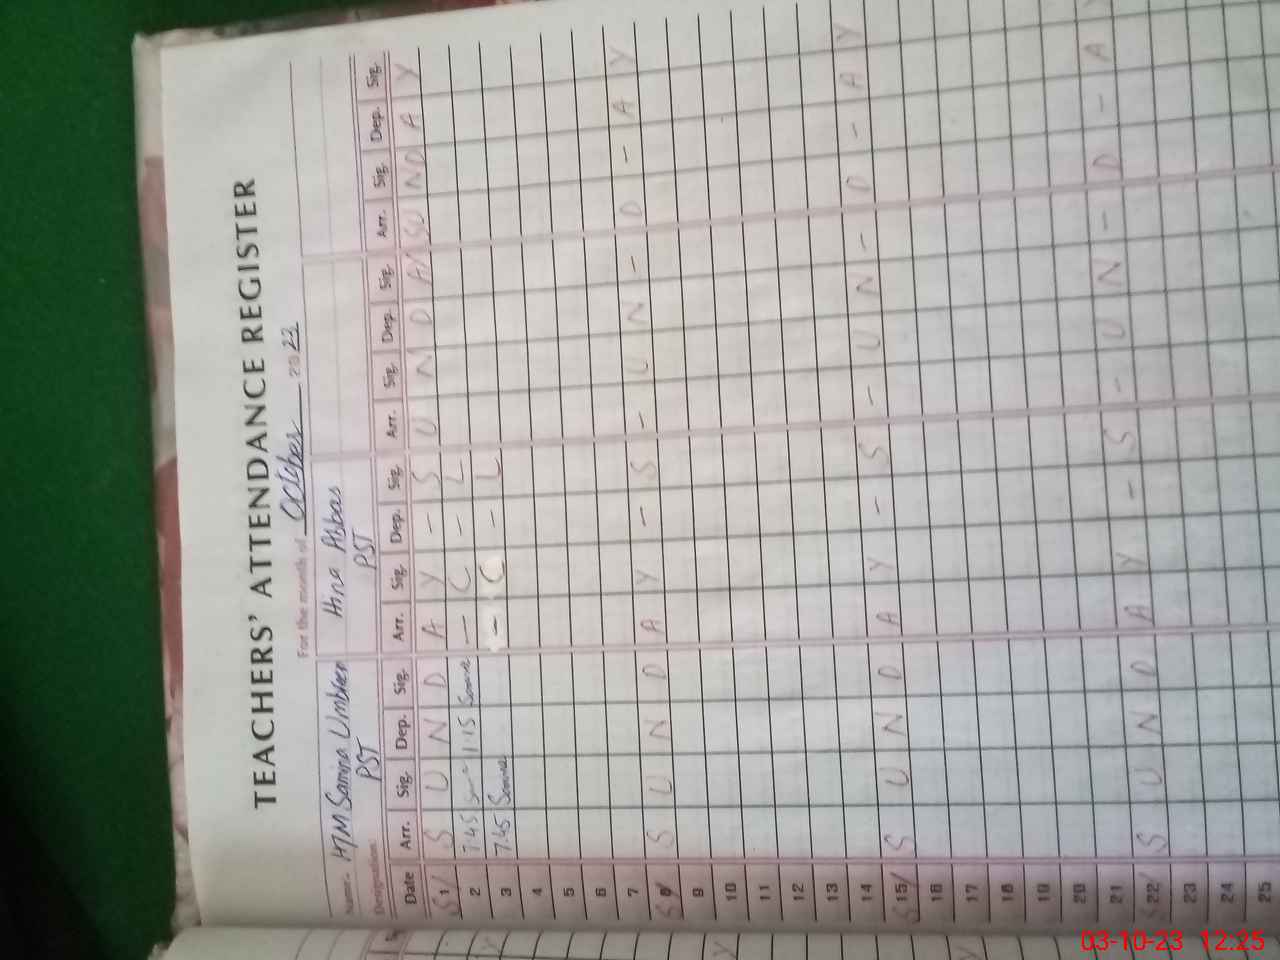 TEACHERS' ATTENDANCE REGISTER
For the month of October 2023
Name: H/M Samina Umbreen Hina Abbas
Designation: PST PST
Date Arr. Sig. Dep. Sig. Arr. Sig. Dep. Sig. Arr. Sig. Dep. Sig. Arr. Sig. Dep. Sig.
S 1 S U N D A Y - S U N D A Y SU ND A Y
2 7.45 1.15 - C - L
3 7.45 - C - L
4
5
6
7
S 8 S U N D A Y - S - U N - D - A Y
9
10
11
12
13
14
S 15 S U N D A Y - S - U N - D - A Y
16
17
18
19
20
21
S 22 S U N D A Y - S - U N - D - A
23
24
25
03-10-23 12:25